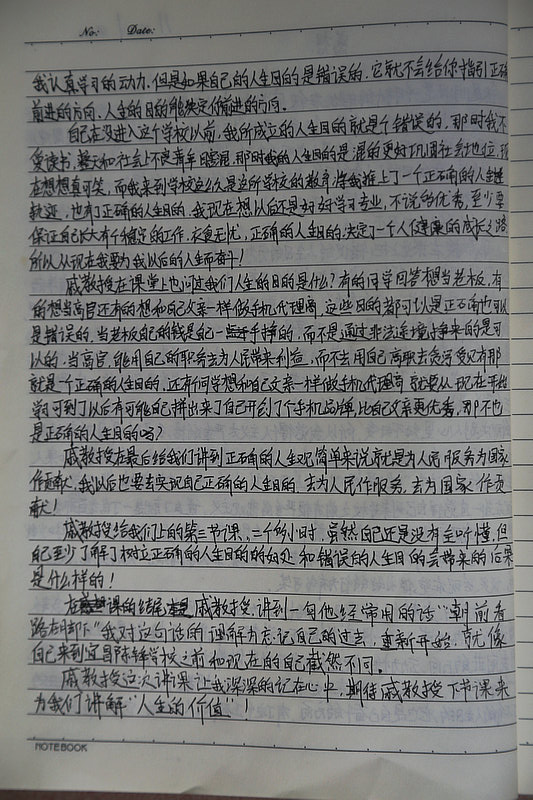 No:    Date:
我认真学习的动力,但是如果自己的人生目的是错误的,它就不会给你指引正确
前进的方向,人生的目的能决定你前进的方向。
自己在没进入这个学校以前,我所成立的人生目的就是个错误的,那时我不
爱读书,整天和社会上不良青年日鬼混,那时我的人生目的是混的更好巩固社会地位,现
在想想真可笑,而我来到学校这么久是这所学校的教育将我推上了一个正确的人生
轨迹,也有了正确的人生目的,我现在想以后还是好好学习专业,不说多优秀,至少要
保证自己长大有个稳定的工作,衣食无忧,正确的人生目的,决定了一个人健康的成长之路
所以从现在我要为我以后的人生而奋斗!
戚教授在课堂上也问过我们人生的目的是什么?有的同学回答想当老板,有
的想当高官还有的想和自己父亲一样做手机代理商,这些目的都可以是正确也可以
是错误的,当老板自己的钱是自己一手挣的,而不是通过非法途境挣来的是可
以的,当高官,能用自己的职务去为人民带来利益,而不去用自己高职去贪污受贿那
就是一个正确的人生目的,还有同学想和自己父亲一样做手机代理商就要从现在开始
学习可到了以后有可能自己拼出来了自己开创了个手机品牌,比自己父亲更优秀,那不也
是正确的人生目的吗?
戚教授在最后给我们讲到正确的人生观简单来说就是为人民服务为国家
作贡献,我以后也要去实现自己正确的人生目的,去为人民作服务,去为国家作贡
献!
戚教授给我们上的第三节课,二个多小时,虽然自己还是没有全听懂,但
自己至少了解了树立正确的人生目的的好处和错误的人生目的会带来的后果
是什么样的!
在课的结尾戚教授讲到一句他经常用的话"朝前看
路在脚下"我对这句话的理解为忘记自己的过去,重新开始,就像
自己来到宜昌陈锋学校之前和现在的自己截然不同。
戚教授这次讲课让我深深的记在心中,期待戚教授下节课来
为我们讲解"人生的价值"!
NOTEBOOK